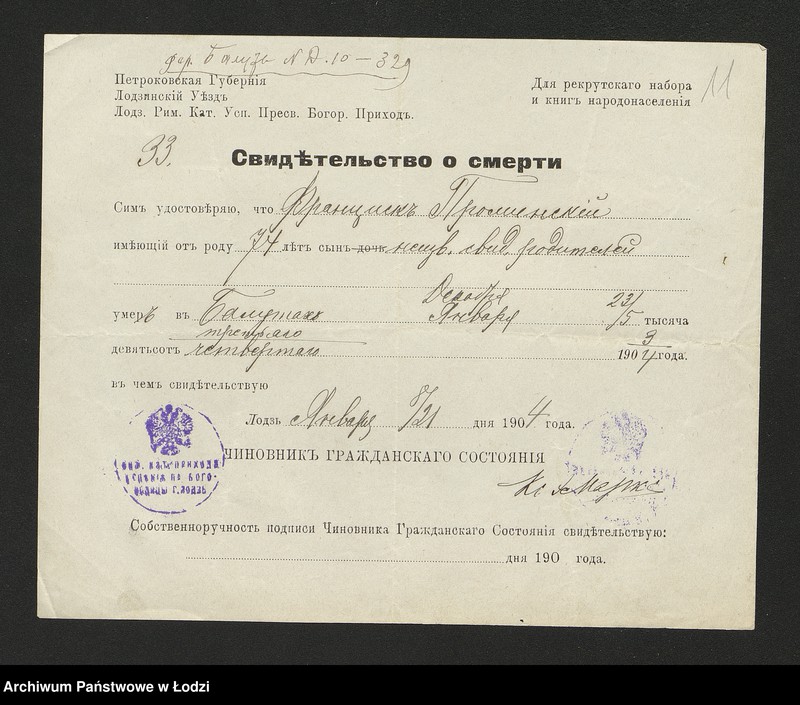 дер. Балуты N Д. 10 – 329
Петроковская Губернія
Лодзинскій Уѣздъ
Лодз. Рим. Кат. Усп. Пресв. Богор. Приходъ.
Для рекрутскаго набора
и книгъ народонаселенія
11
33.
Свидѣтельство о смерти
Симъ удостовѣряю, что Францискъ
имѣющій отъ роду 74 лѣтъ сынъ дочь неизв. свид. родителей
Декабря 23/
умеръ въ Балутахъ Января /5 тысяча
третьяго 3
девятьсотъ четвертаго 1904 года.
въ чемъ свидѣтельствую
Лодзь Января 8/21 дня 1904 года.
ЧИНОВНИКЪ ГРАЖДАНСКАГО СОСТОЯНІЯ
Собственноручность подписи Чиновника Гражданскаго Состоянія свидѣтельствую:
дня 190 года.
Archiwum Państwowe w Łodzi